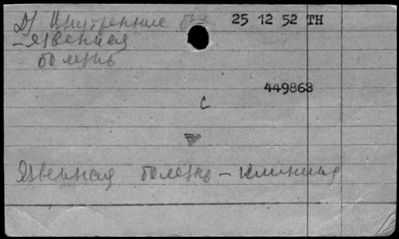 Д) Внутренние бол. 25 12 52 ТН
- Язвенная
болезнь
449868
с
Язвенная болезнь - клиника